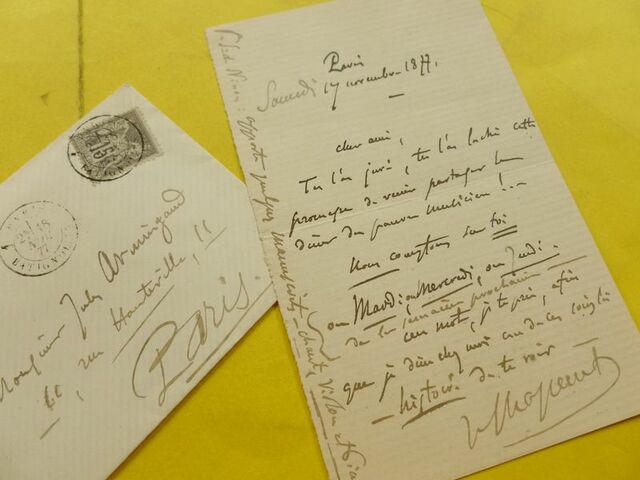 Paris
Samedi 17 novembre 1877.
cher ami,
Tu l'as juré, tu l'as lâché cette
promesse de venir partager le
dîner du pauvre musicien!
Nous comptons sur toi
ou Mardi ou Mercredi, ou Jeudi.
de la semaine prochaine
un mot, je te prie, afin
que je
histoire de te voir
apporte quelques manuscrits
Monsieur Jules Armingaud
rue Hauteville, 11
Paris
15
BATIGNOLLES